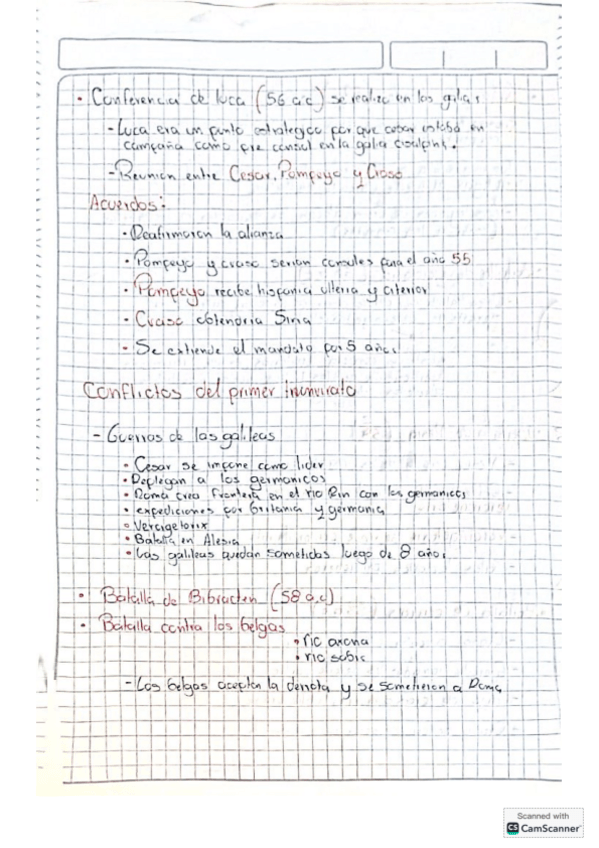 • Conferencia de luca (56 a.c) se realizo en las galias
- Luca era un punto estrategico por que cesar estaba en
campaña como fue consul en la galia cisalpina.
- Reunion entre Cesar, Pompeyo y Craso
Acuerdos:
• Reafirmaron la alianza
• Pompeyo y craso serian consules para el año 55
• Pompeyo recibe hispania ulteria y citerior
• Craso obtendria Siria
• Se extiende el mandato por 5 años
Conflictos del primer triunvirato
- Guerras de las galileas
• Cesar se impone como lider
• Replegan a los germanicos
• Roma crea frontera en el rio Rin con los germanicos
• expediciones por britania y germania
• Vercigetorix
• Batalla en Alesia
• Las galileas quedan sometidas luego de 8 años.
• Batalla de Bibracten (58 a.c)
• Batalla contra los belgas
• rio axona
• rio sabis
- Los belgas aceptan la derrota y se sometieron a Roma
Scanned with
CS CamScanner